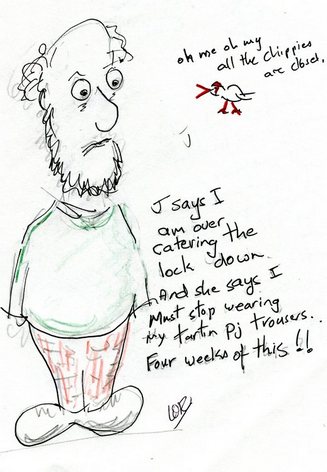 oh me oh my
all the chippies
are closed.
J says I
am over
catering the
lock down.
And she says I
Must stop wearing
my tartin Pj trousers.
Four weeks of this!!